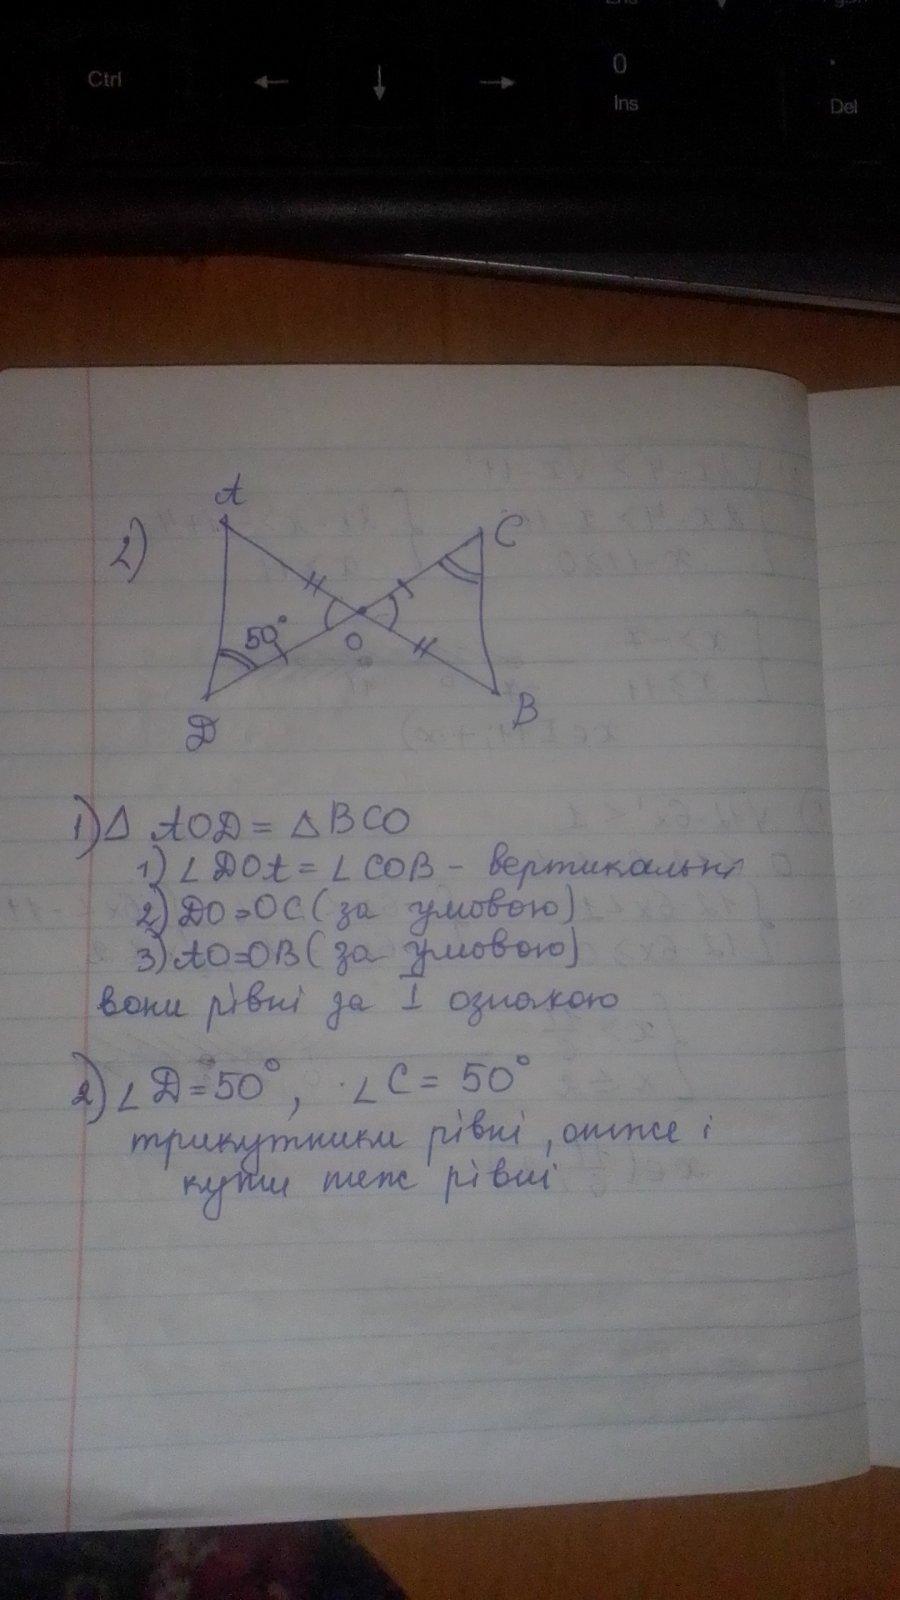 Ctrl ← ↓ → 0
Ins Del
2)
A
C
50°
O
D
B
1) Δ AOD = Δ BCO
1) ∠DOA = ∠COB - вертикальні
2) DO=OC (за умовою)
3) AO=OB (за умовою)
вони рівні за I ознакою
2) ∠D=50°, ∠C = 50°
трикутники рівні, отже і
кути теж рівні